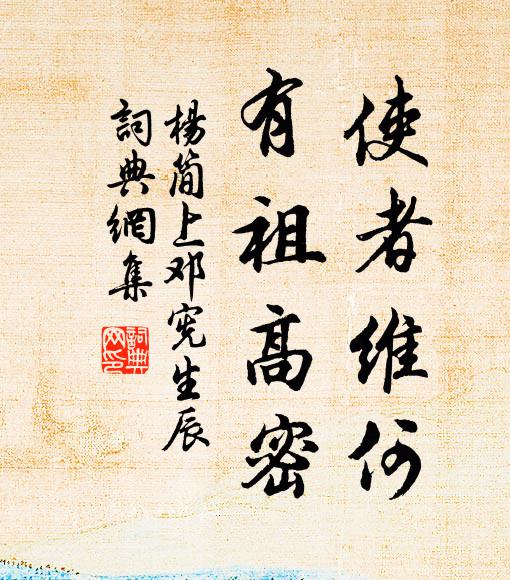 使者維何
有祖高密
楊简上邓宪生辰
詞典網集
詞典网印